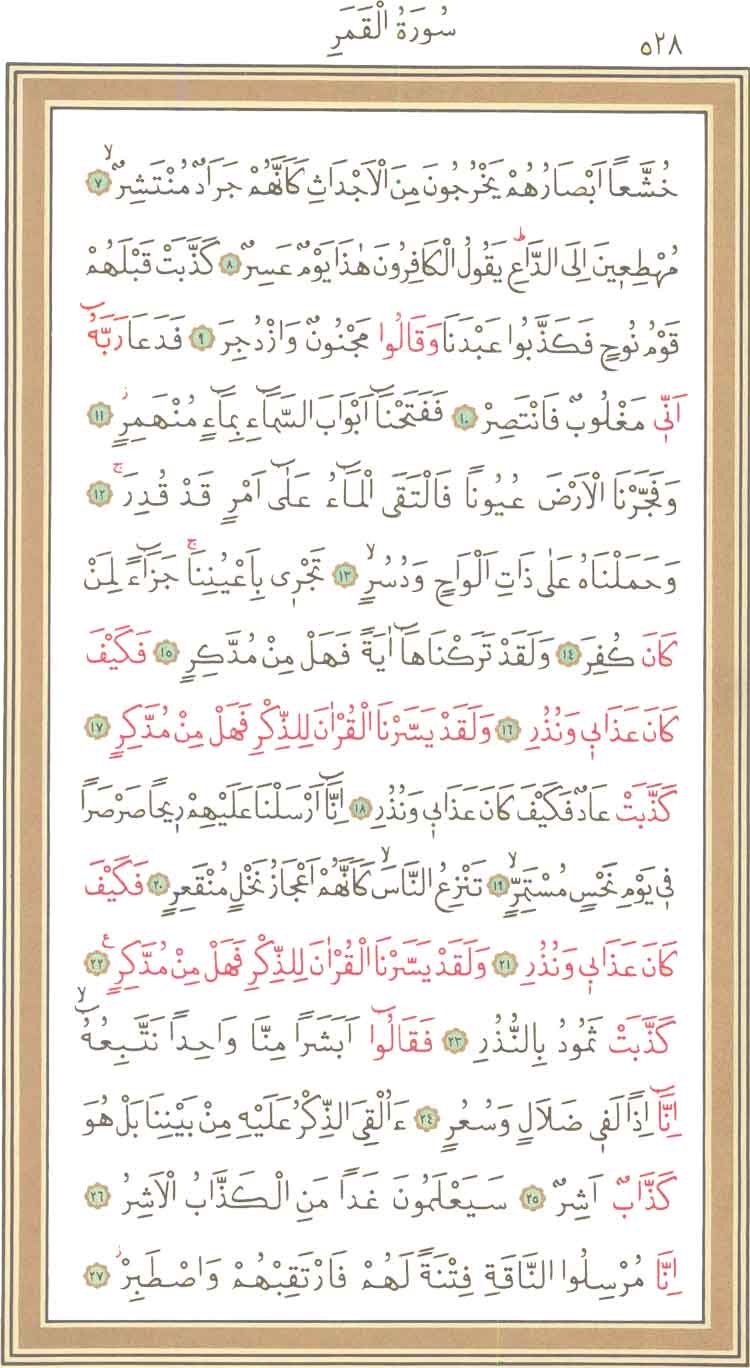 سُورَةُ الْقَمَرِ
٥٢٨
خُشَّعاً اَبْصَارُهُمْ يَخْرُجُونَ مِنَ الْاَجْدَاثِ كَاَنَّهُمْ جَرَادٌ مُنْتَشِرٌۙ ٧
مُهْطِعٖينَ اِلَى الدَّاعِؕ يَقُولُ الْكَافِرُونَ هٰذَا يَوْمٌ عَسِرٌ ٨ كَذَّبَتْ قَبْلَهُمْ
قَوْمُ نُوحٍ فَكَذَّبُوا عَبْدَنَا وَقَالُوا مَجْنُونٌ وَازْدُجِرَ ٩ فَدَعَا رَبَّهُٓ
اَنّٖى مَغْلُوبٌ فَانْتَصِرْ ١٠ فَفَتَحْنَٓا اَبْوَابَ السَّمَٓاءِ بِمَٓاءٍ مُنْهَمِرٍؗ ١١
وَفَجَّرْنَا الْاَرْضَ عُيُوناً فَالْتَقَى الْمَٓاءُ عَلٰٓى اَمْرٍ قَدْ قُدِرَۚ ١٢
وَحَمَلْنَاهُ عَلٰى ذَاتِ اَلْوَاحٍ وَدُسُرٍۙ ١٣ تَجْرٖى بِاَعْيُنِنَاۚ جَزَٓاءً لِمَنْ
كَانَ كُفِرَ ١٤ وَلَقَدْ تَرَكْنَاهَٓا اٰيَةً فَهَلْ مِنْ مُدَّكِرٍ ١٥ فَكَيْفَ
كَانَ عَذَابٖى وَنُذُرِ ١٦ وَلَقَدْ يَسَّرْنَا الْقُرْاٰنَ لِلذِّكْرِ فَهَلْ مِنْ مُدَّكِرٍ ١٧
كَذَّبَتْ عَادٌ فَكَيْفَ كَانَ عَذَابٖى وَنُذُرِ ١٨ اِنَّٓا اَرْسَلْنَا عَلَيْهِمْ رٖيحاً صَرْصَراً
فٖى يَوْمِ نَحْسٍ مُسْتَمِرٍّۙ ١٩ تَنْزِعُ النَّاسَۙ كَاَنَّهُمْ اَعْجَازُ نَخْلٍ مُنْقَعِرٍ ٢٠ فَكَيْفَ
كَانَ عَذَابٖى وَنُذُرِ ٢١ وَلَقَدْ يَسَّرْنَا الْقُرْاٰنَ لِلذِّكْرِ فَهَلْ مِنْ مُدَّكِرٍࣖ ٢٢
كَذَّبَتْ ثَمُودُ بِالنُّذُرِ ٢٣ فَقَالُٓوا اَبَشَراً مِنَّا وَاحِداً نَتَّبِعُهُٓۙ
اِنَّٓا اِذاً لَفٖى ضَلَالٍ وَسُعُرٍ ٢٤ ءَاُلْقِىَ الذِّكْرُ عَلَيْهِ مِنْ بَيْنِنَا بَلْ هُوَ
كَذَّابٌ اَشِرٌ ٢٥ سَيَعْلَمُونَ غَداً مَنِ الْكَذَّابُ الْاَشِرُ ٢٦
اِنَّا مُرْسِلُوا النَّاقَةِ فِتْنَةً لَهُمْ فَارْتَقِبْهُمْ وَاصْطَبِرْؗ ٢٧